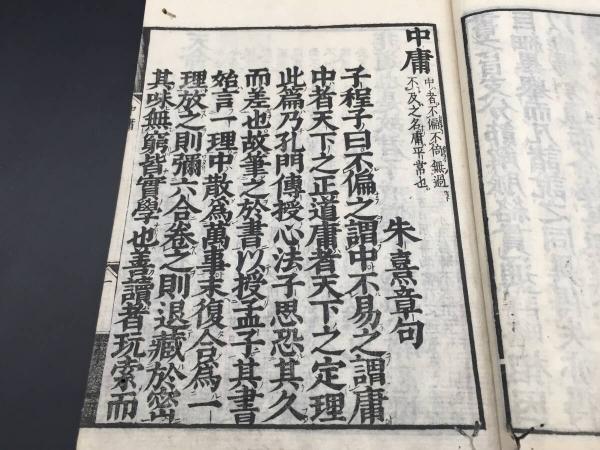 中庸
中者不偏不倚無過
不及之名庸平常也
朱熹章句
子程子曰不偏之謂中不易之謂庸
中者天下之正道庸者天下之定理
此篇乃孔門傳授心法子思恐其久
而差也故筆之於書以授孟子其書
始言一理中散為萬事末復合為一
理放之則彌六合卷之則退藏於密
其味無窮皆實學也善讀者玩索而